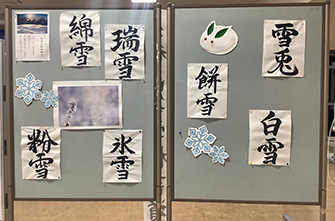 綿雪
瑞雪
粉雪
氷雪
雪兎
餅雪
白雪